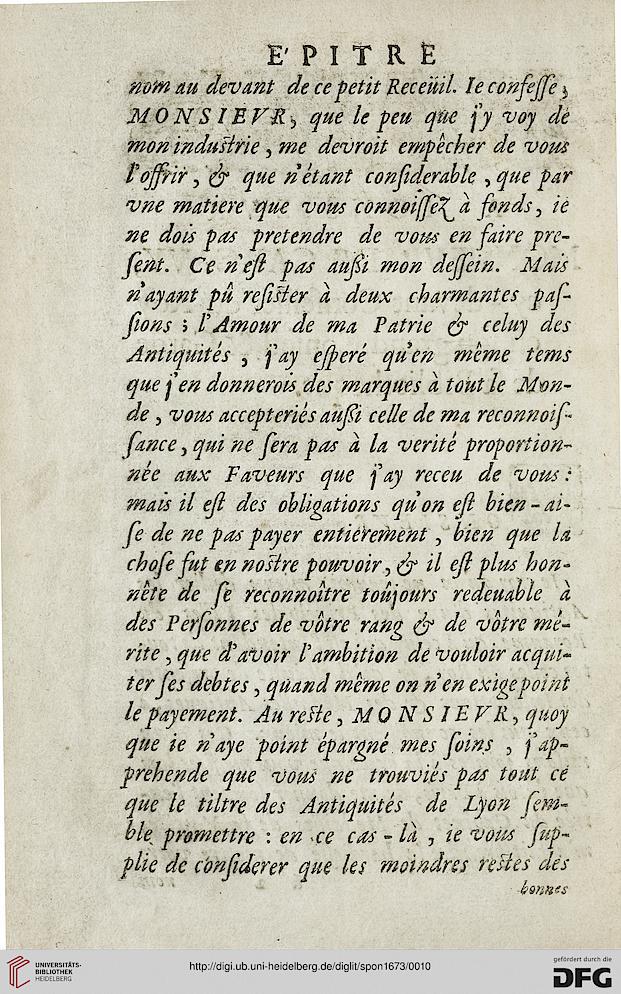 E'PITRE
nom au devant de ce petit Receüil. Ie confesse,
MONSIEVR, que le peu que j'y voy de
mon industrie, me devroit empêcher de vous
l'offrir, & que n'étant considerable, que par
vne matiere que vous connoissez à fonds, ie
ne dois pas pretendre de vous en faire pre-
sent. Ce n'est pas aussi mon dessein. Mais
n'ayant pû resister à deux charmantes pas-
sions ; l'Amour de ma Patrie & celuy des
Antiquités, j'ay esperé qu'en même tems
que j'en donnerois des marques à tout le Mon-
de, vous accepteriés aussi celle de ma reconnois-
sance, qui ne sera pas à la verité proportion-
née aux Faveurs que j'ay receu de vous :
mais il est des obligations qu'on est bien-ai-
se de ne pas payer entierement, bien que la
chose fut en nostre pouvoir, & il est plus hon-
nête de se reconnoître toûjours redeuable à
des Personnes de vôtre rang & de vôtre mé-
rite, que d'avoir l'ambition de vouloir acqui-
ter ses debtes, quand même on n'en exige point
le payement. Au reste, MONSIEVR, quoy
que ie n'aye point épargné mes soins, j'ap-
prehende que vous ne trouviés pas tout ce
que le tiltre des Antiquités de Lyon sem-
ble promettre : en ce cas-là, ie vous sup-
plie de considerer que les moindres restes des
bonnes
UNIVERSITÄTS-
BIBLIOTHEK
HEIDELBERG
http://digi.ub.uni-heidelberg.de/diglit/spon1673/0010
gefördert durch die
DFG